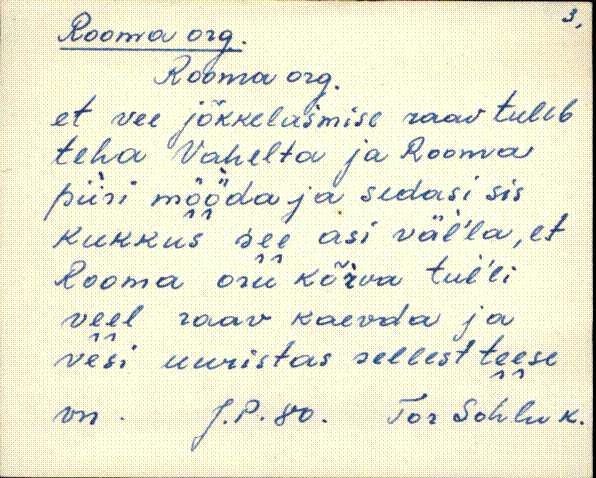 3,
Rooma org.
Rooma org.
et vee jõkkelasmise raav tuleb
teha Vahelta ja Rooma
piiri mööda ja sedasi sis
kukkus see asi väl'la, et
Rooma oru kõrva tul'li
veel raav kaevda ja
vesi uuristas sellest teese
vn. J.P. 80. Tor Sohlu k.